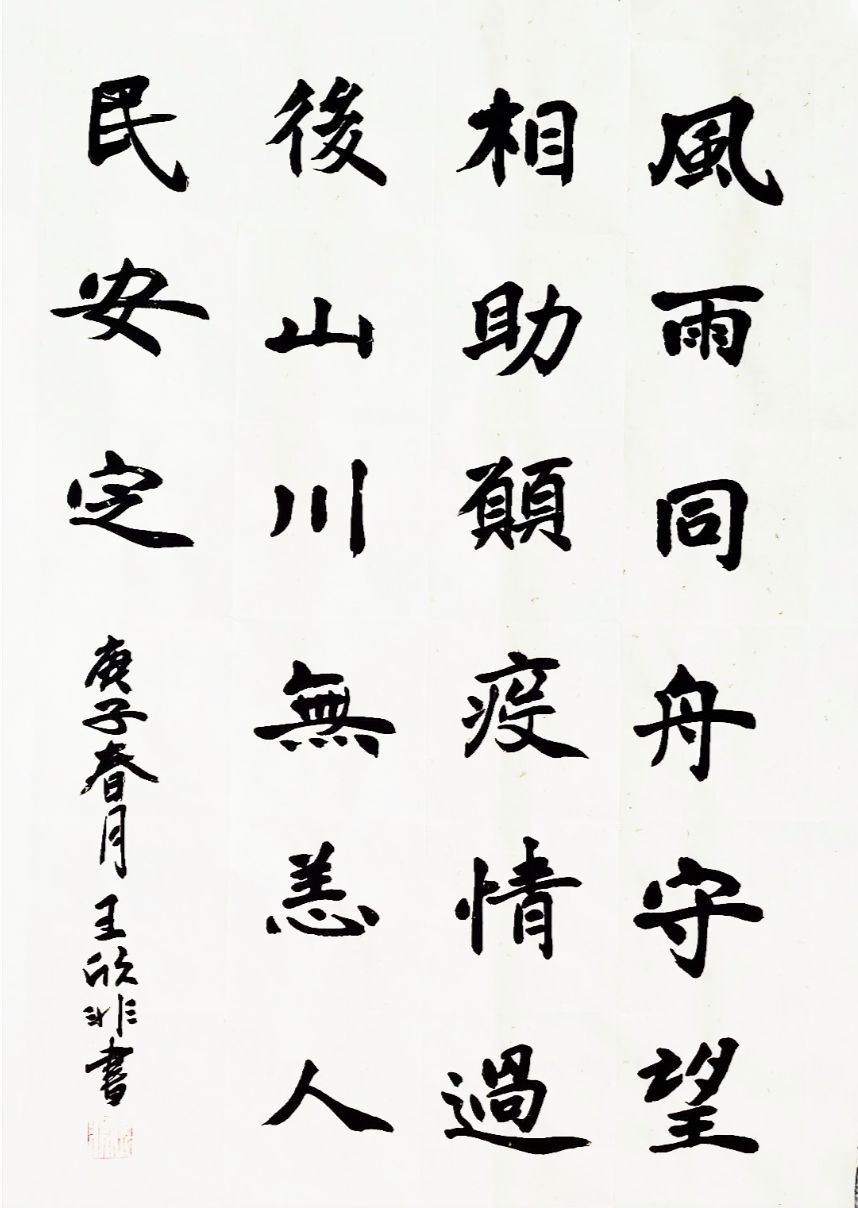 風雨同舟守望
相助願疫情過
後山川無恙人
民安定
庚子春月王欣非書